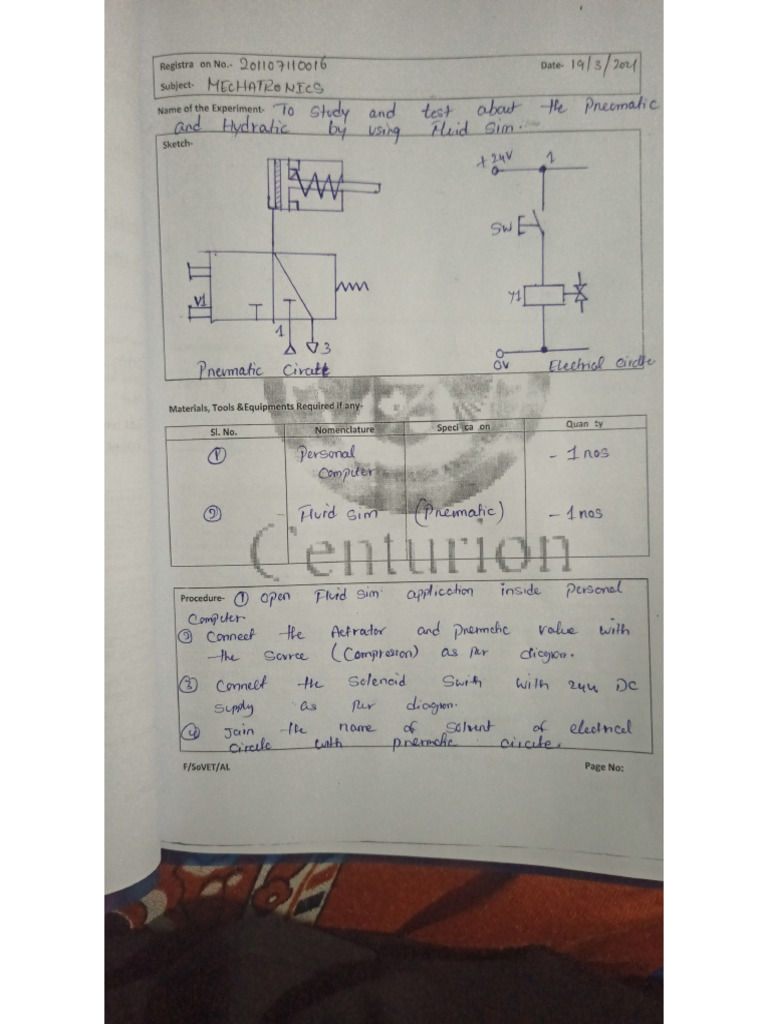 Registra on No.- 201107110016 Date- 19/3/2021
Subject- MECHATRONICS
Name of the Experiment- To Study and test about the Pneomatic
and Hydratic by using Fluid Sim.
Sketch-
+24V 1
SW
V1
Y1
1
3
0V
Pnevmatic Ciratt Electriol circlte
Materials, Tools &Equipments Required if any-
Sl. No. Nomenclature Speci ca on Quan ty
① Personal - 1 nos
Computer
② Fluid Sim (Pnematic) - 1 nos
Centurion
Procedure- ① Open Fluid Sim application inside Personal
Computer
② Connect the Actrator and pnermatic value with
the Source (Compresson) as Per diagron.
③ Connect the Solenoid Swith with 24v DC
Supply as Per diagron.
④ Jain the name of Solvent of electrical
circle with pnermatic circite.
F/SoVET/AL Page No: